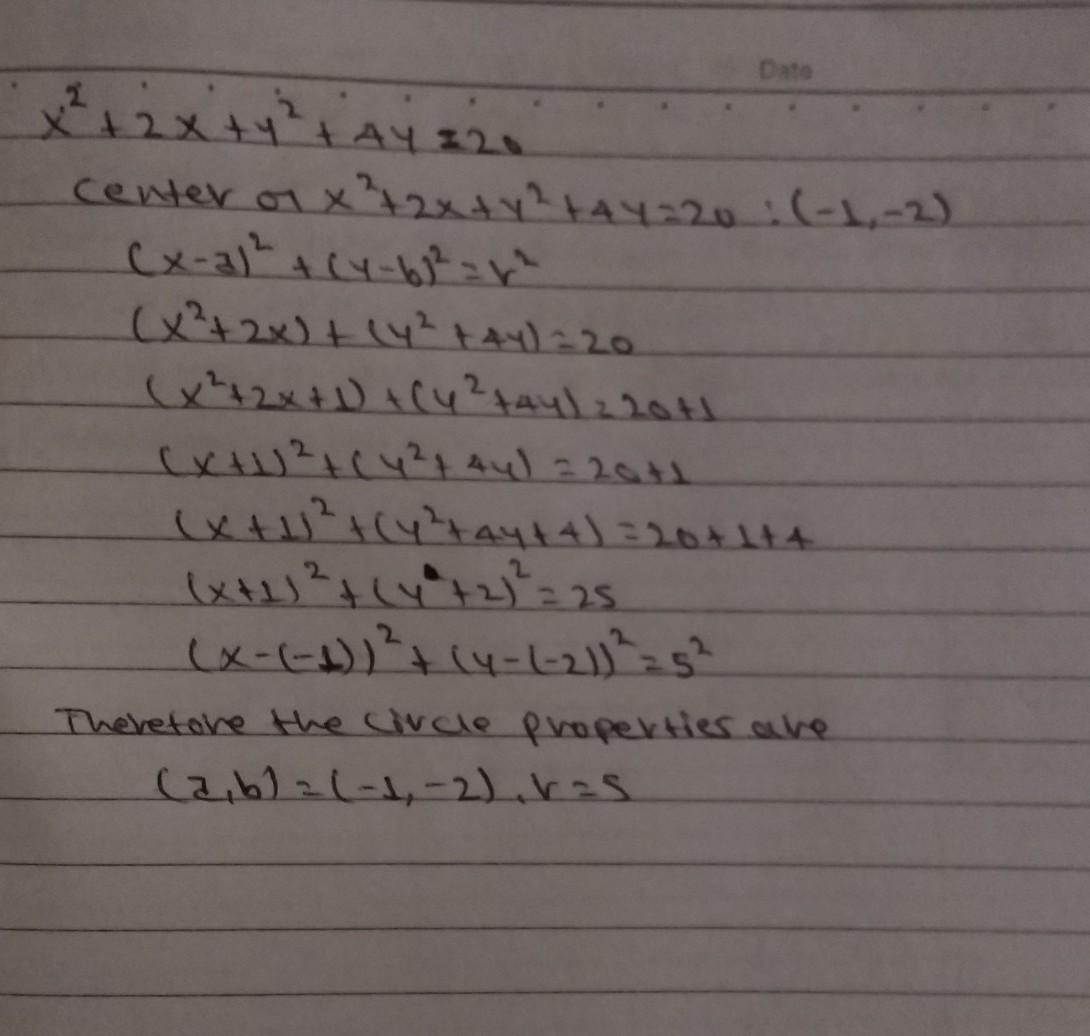 Date
x²+2x+y²+4y=20
center of x²+2x+y²+4y=20 : (-1,-2)
(x-a)²+(y-b)²=r²
(x²+2x)+(y²+4y)=20
(x²+2x+1)+(y²+4y)=20+1
(x+1)²+(y²+4y)=20+1
(x+1)²+(y²+4y+4)=20+1+4
(x+1)²+(y+2)²=25
(x-(-1))²+(y-(-2))²=5²
Therefore the circle properties are
(a,b)=(-1,-2), r=5